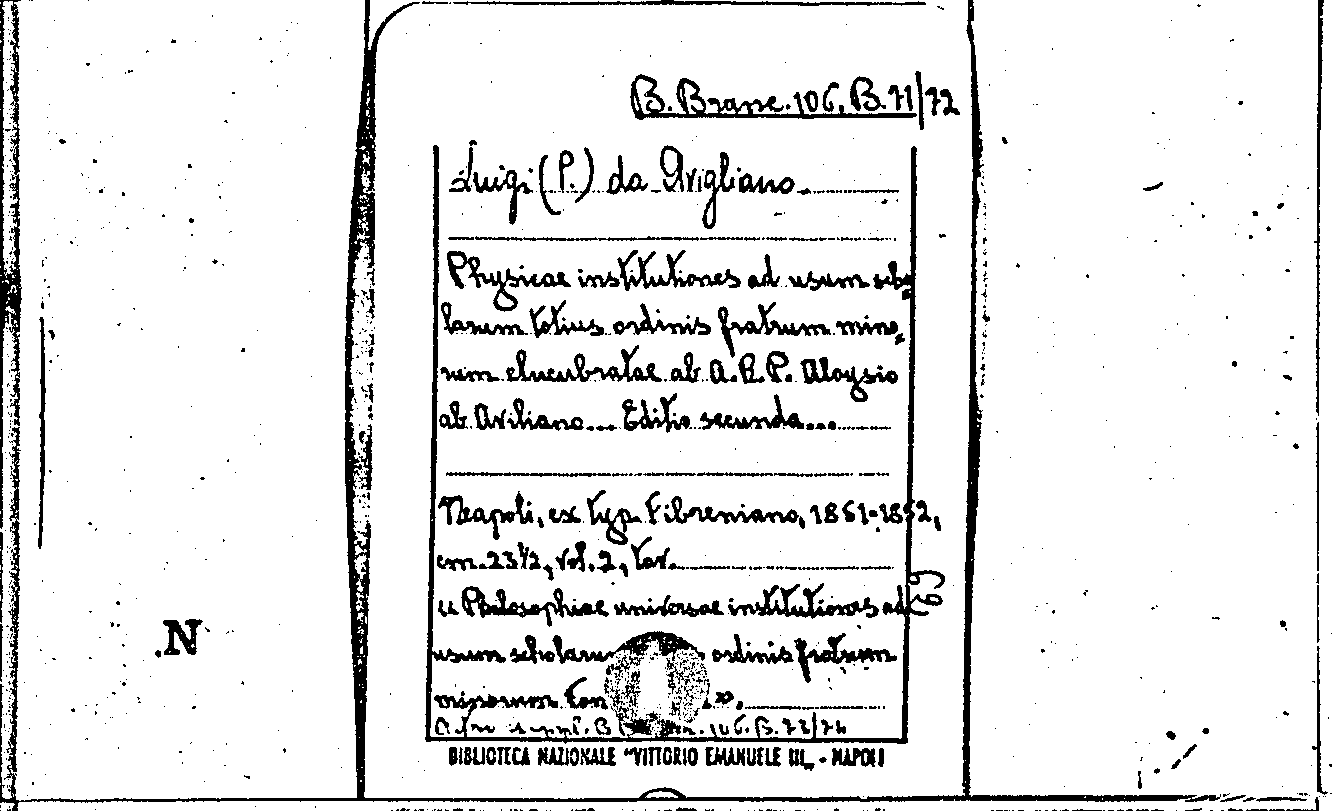 B. Branc. 106. B. 71/72
Luigi (P.) da Avigliano.
Physicae institutiones ad usum scho=
larum totius ordinis fratrum mino=
rum elucubratae ab A. R. P. Aloysio
ab Aviliano... Editio secunda...
Neapoli, ex typ. Fibreniano, 1851-1852,
cm. 23½, vol. 2, tav.
« Philosophiae universae institutiones ad
usum scholarum ordinis fratrum
minorum Tom ».
69
106. B. 73/74
BIBLIOTECA NAZIONALE "VITTORIO EMANUELE III„ - NAPOLI
N.